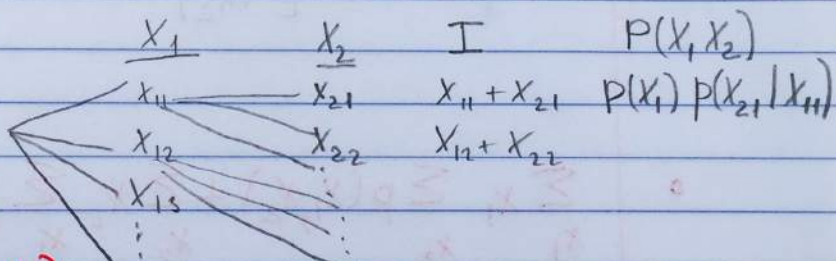 X₁ X₂ I P(X₁ X₂)
X₁₁ X₂₁ X₁₁ + X₂₁ p(X₁) p(X₂₁ | X₁₁)
X₁₂ X₂₂ X₁₂ + X₂₂
X₁₃